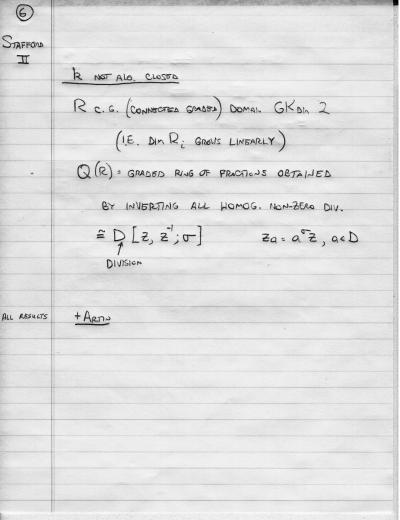 6
STAFFORD
II
k NOT ALG. CLOSED
R C.G. (CONNECTED GRADED) DOMAIN GKDIM 2
(I.E. DIM Rᵢ GROWS LINEARLY)
Q(R) = GRADED RING OF FRACTIONS OBTAINED
BY INVERTING ALL HOMOG. NON-ZERO DIV.
≅ D[z, z⁻¹; σ] za = a^σ z, a∈D
DIVISION
ALL RESULTS + ARTIN